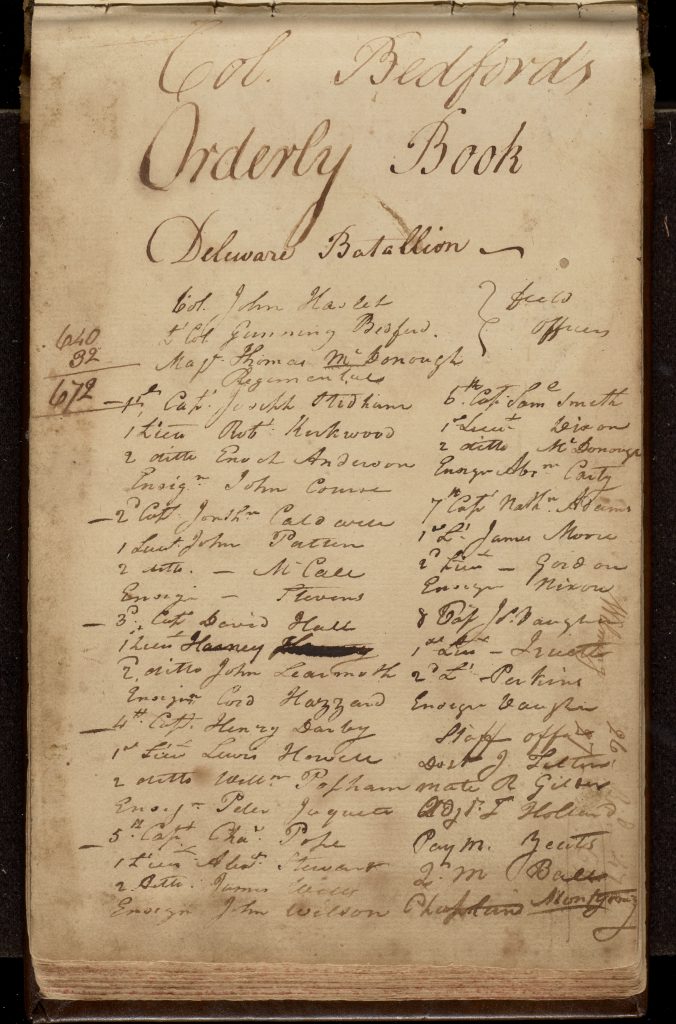 Col. Bedfords
Orderly Book
Deleware Batallion
Col. John Haslet
Lt Col. Gunning Bedford.
Majr Thomas McDonough
Field
Officers
640
32
672
Regimentals
1st Capt Joseph Stidham
1 Lieu Robt Kirkwood
2 ditto Enoch Anderson
Ensign John Course
2d Capt Jonthn Caldwell
1 Lieut John Patten
2 ditto. - McCall
Ensign - Stevens
3d Capt David Hall
1st Lieut Harney
2d ditto John Learmoth
Ensign Cord Hazzard
4th Capt. Henry Darby
1st Lieu Lewis Howell
2 ditto Willm Popham
Ensign Peter Jaquett
5th Capt Chas. Pope
1 Lieut Alexr Stewart
2 ditto. James
Ensign John Wilson
6th Capt Saml Smith
1st Lieut Dixon
2 ditto McDonough
Ensign Abrm Carty
7th Capt Nathn Adams
1st Lt James Moore
2d Lieut - Gordon
Ensign Nixon
8 Capt Js. Vaughn
1st Lieu - Truett
2d Lt Perkins
Ensign Vaughn
Staff officers
Doctr J Tilton
mate R Gilder
Adjt. Holland
Pay M. Yeats
Qr M Ball
Chaplain Montgomy